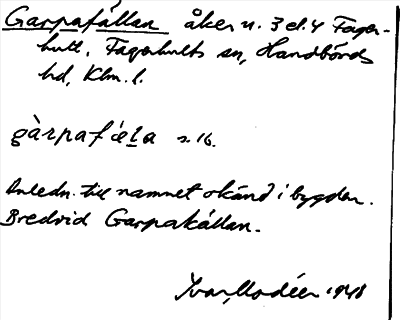 Garpafállan åker u. 3 el. 4 Fager-
hult, Fagerhults sn, Handbörds
hd, Klm. l.
gàrpafæ̀la s. 16.
Anledn. till namnet okänd i bygden.
Bredvid Garpakállan.
Ivar Modéer 1948